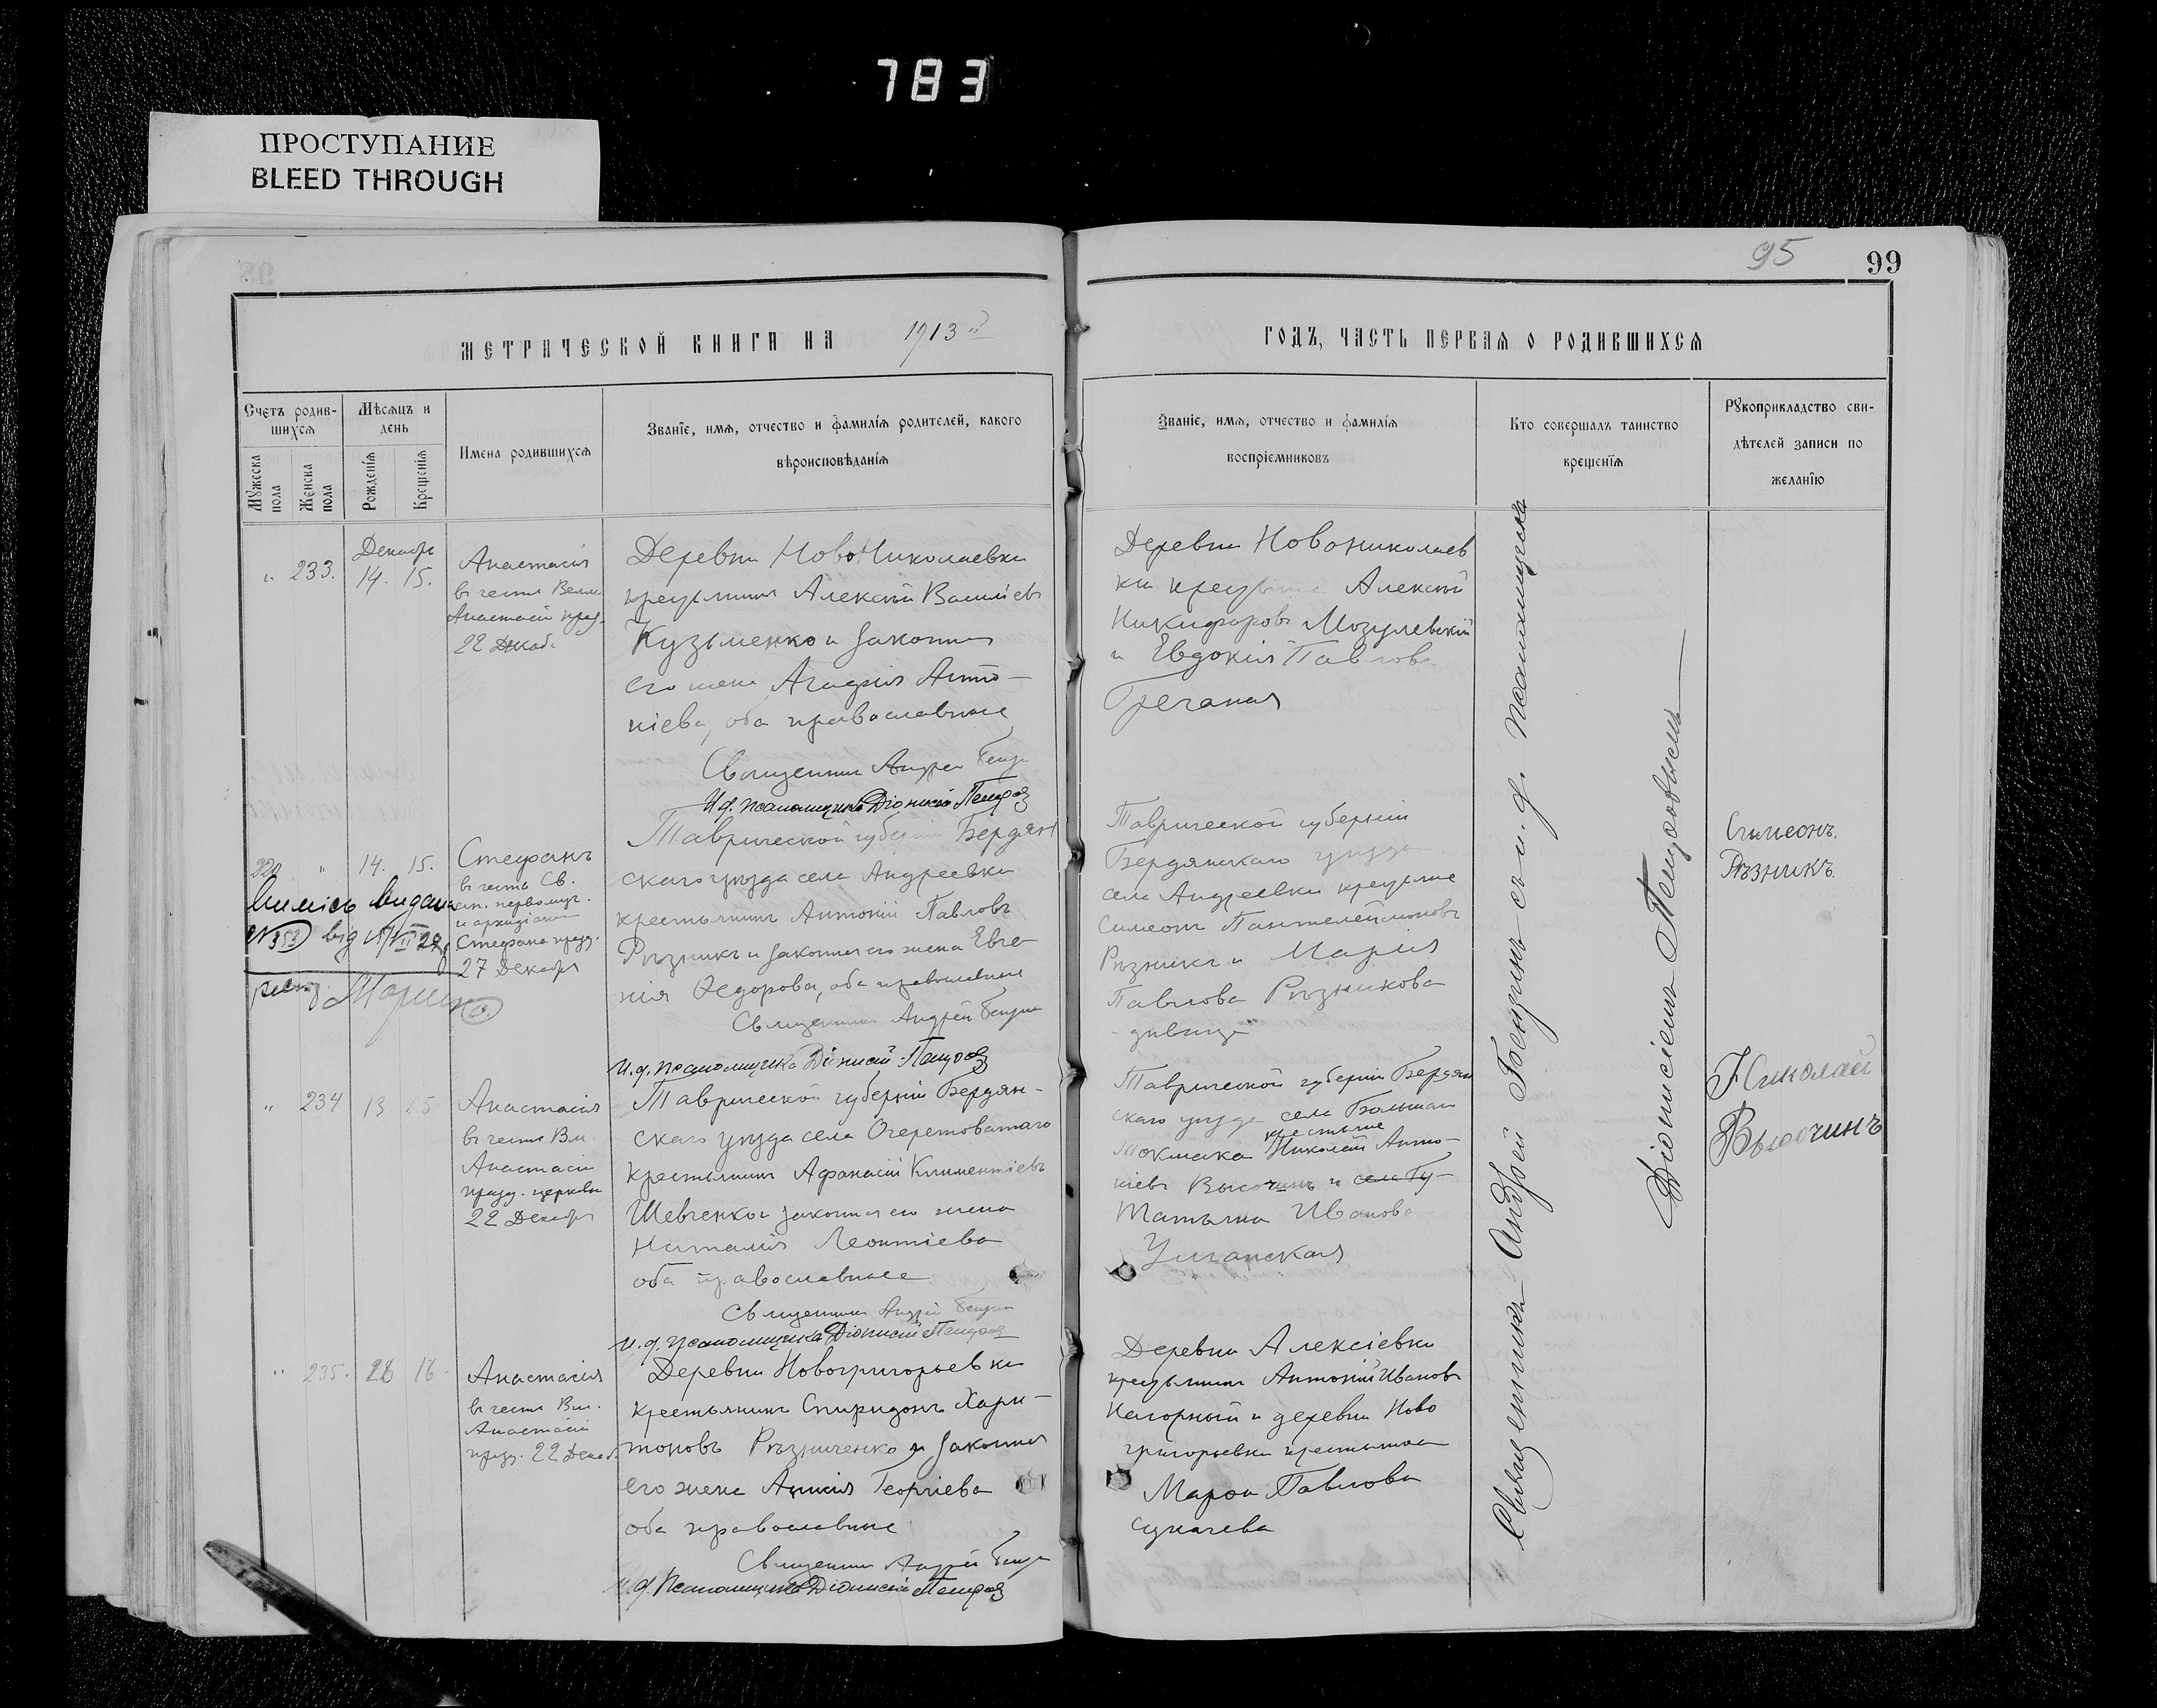 783
ПРОСТУПАНИЕ
BLEED THROUGH
95
99
МЕТРИЧЕСКОЙ КНИГИ НА 1913
ГОДЪ, ЧАСТЬ ПЕРВАЯ О РОДИВШИХСЯ
Счетъ родив-
шихся
Мужеска
пола
Женска
пола
Мѣсяцъ и
день
Рожденія
Крещенія
Имена родившихся
Званіе, имя, отчество и фамилія родителей, какого
вѣроисповѣданія
Званіе, имя, отчество и фамилія
воспріемниковъ
Кто совершалъ таинство
крещенія
Рукоприкладство сви-
дѣтелей записи по
желанію
" 233.
Декабрь
14. 15.
Анастасія
въ честь Велм.
Анастасіи празд.
22 Декаб.
Деревни НовоНиколаевки
крестьянинъ Алексій Василіевъ
Кузьменко и законная
его жена Агафія Анто-
ніева, оба православные
Священникъ Андрей
И.д. псаломщика Діонисій Петровъ
Деревни Новониколаев
ки Алексій
Никифоровъ Могулевскій
и Евдокія Павлова
Гречаная
220 " 14. 15.
Стефанъ
въ честь Св.
ап. первомуч.
и архидіакона
Стефана празд.
27 Декабря
Виписъ видана
N 353 від
Таврической губерніи Бердян
скаго уѣзда села Андреевки
крестьянинъ Антоній Павловъ
Рѣзникъ и законная его жена Евге-
нія Ѳедорова, оба православные
Священникъ Андрей
И.д. псаломщика Діонисій Петровъ
Таврической губерніи
Бердянскаго уѣзда
села Андреевки крестьяне
Симеонъ Пантелеймоновъ
Рѣзникъ и Марія
Павлова Рѣзникова
- дѣвица
Симеонъ.
Рѣзникъ.
" 234 13. 15
Анастасія
въ честь Вм.
Анастасіи
празд. церковью
22 Декабря
Таврической губерніи Бердян-
скаго уѣзда села Очеретоватаго
крестьянинъ Афанасій Климентіевъ
Шевченко и законная его жена
Наталія Леонтіева
оба православные
Священникъ Андрей
И.д. псаломщика Діонисій Петровъ
Таврической губерніи Бердян
скаго уѣзда села Большаго
крестьяне
Токмака Николай Анто-
ніевъ Высочинъ и села
Татьяна Иванова
Николай
Высочинъ
" 235. 16.
Анастасія
въ честь Вм.
Анастасіи
празд. 22 Декаб.
Деревни Новогригорьевки
крестьянинъ Спиридонъ Хари-
тоновъ Рѣзниченко и законная
его жена Георгіева
оба православные
Священникъ Андрей
И.д. псаломщика Діонисій Петровъ
Деревни Алексіевки
крестьянинъ Антоній Ивановъ
Нагорный и деревни Ново
григорьевки крестьянка
Павлова
Сукачева
Священникъ Андрей съ и. д. псаломщика
Діонисіемъ Петровымъ